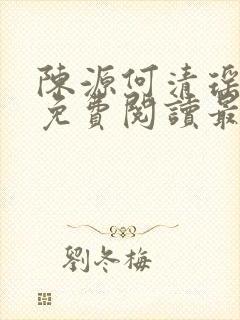 陳源何清瑤
免費閱讀最
劉冬梅